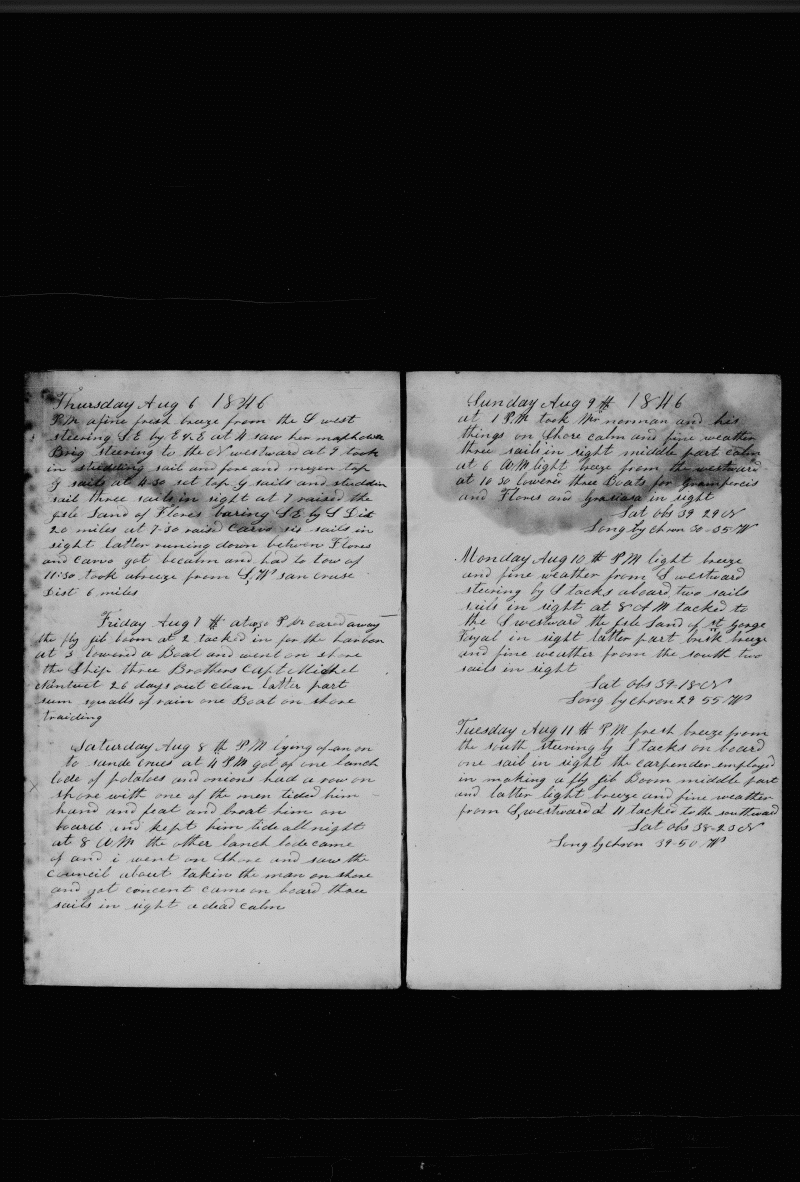 Thursday Aug 6 1846
P.M. a fine fresh breeze from the S west
steering S.E. by E & E at 4 saw her
Brig steering to the N westward at 9 took
in studding sail and fore and mezen top
g sails at 4-30 set top g sails and studden
sail three sails in sight at 7 raised the
Isle Sand of Flores baring S.E. by S Dist
20 miles at 7-30 raised Carvo six sails in
sight latter runing down betwen Flores
and carvo got becalm and had to tow of
11:30 took abreeze from S,W san cruse
Dist 6 miles
Friday Aug 7 th at P.M. cared away
the fly jib boom at 2 tacked in for the harbor
at 3 lowered a Boat and went on shore
the Ship three Brothers Capt Michel
Nantuct 26 days out clean latter part
sum squalls of rain one Boat on shore
traiding
Saturday Aug 8 th P M lying of an on
to sande crues at 4 P.M got of one lanch
lode of potatoes and onions had a row on
shore with one of the men tided him
hand and feat and broat him on
board and kept him tide all night
at 8 A M the other lanch lode came
of and i went on shore and saw the
council about takin the man on shore
and got concent came on board three
sails in sight a dead calm
Sunday Aug 9 th 1846
at 1 P.M took Mr norman and his
things on shore calm and fine weather
three sails in sight middle part calm
at 6 A M light breze from the westward
at 10 30 lowered three Boats for
and Flores and Graciosa in sight
Lat obs 39 29 N
Long by chron 30-35 W
Monday Aug 10 th P M light breeze
and fine weather from S westward
steering by S tacks aboard, two sails
sails in sight at 8 A M tacked to
the S westward the Isle Sand of st Gorge
Fayal in sight latter part brisk breeze
and fine weather from the south two
sails in sight
Lat obs 39-18 N
Long by chron 29 55 W
Tuesday Aug 11 th P M fresh breeze from
the south steering by S tacks on board
one sail in sight the carpender employed
in making a fly jib Boom middle part
and latter light breeze and fine weather
from S,westward at 11 tacked to the southward
Lat obs 38-23 N
Long by chron 29-50 W